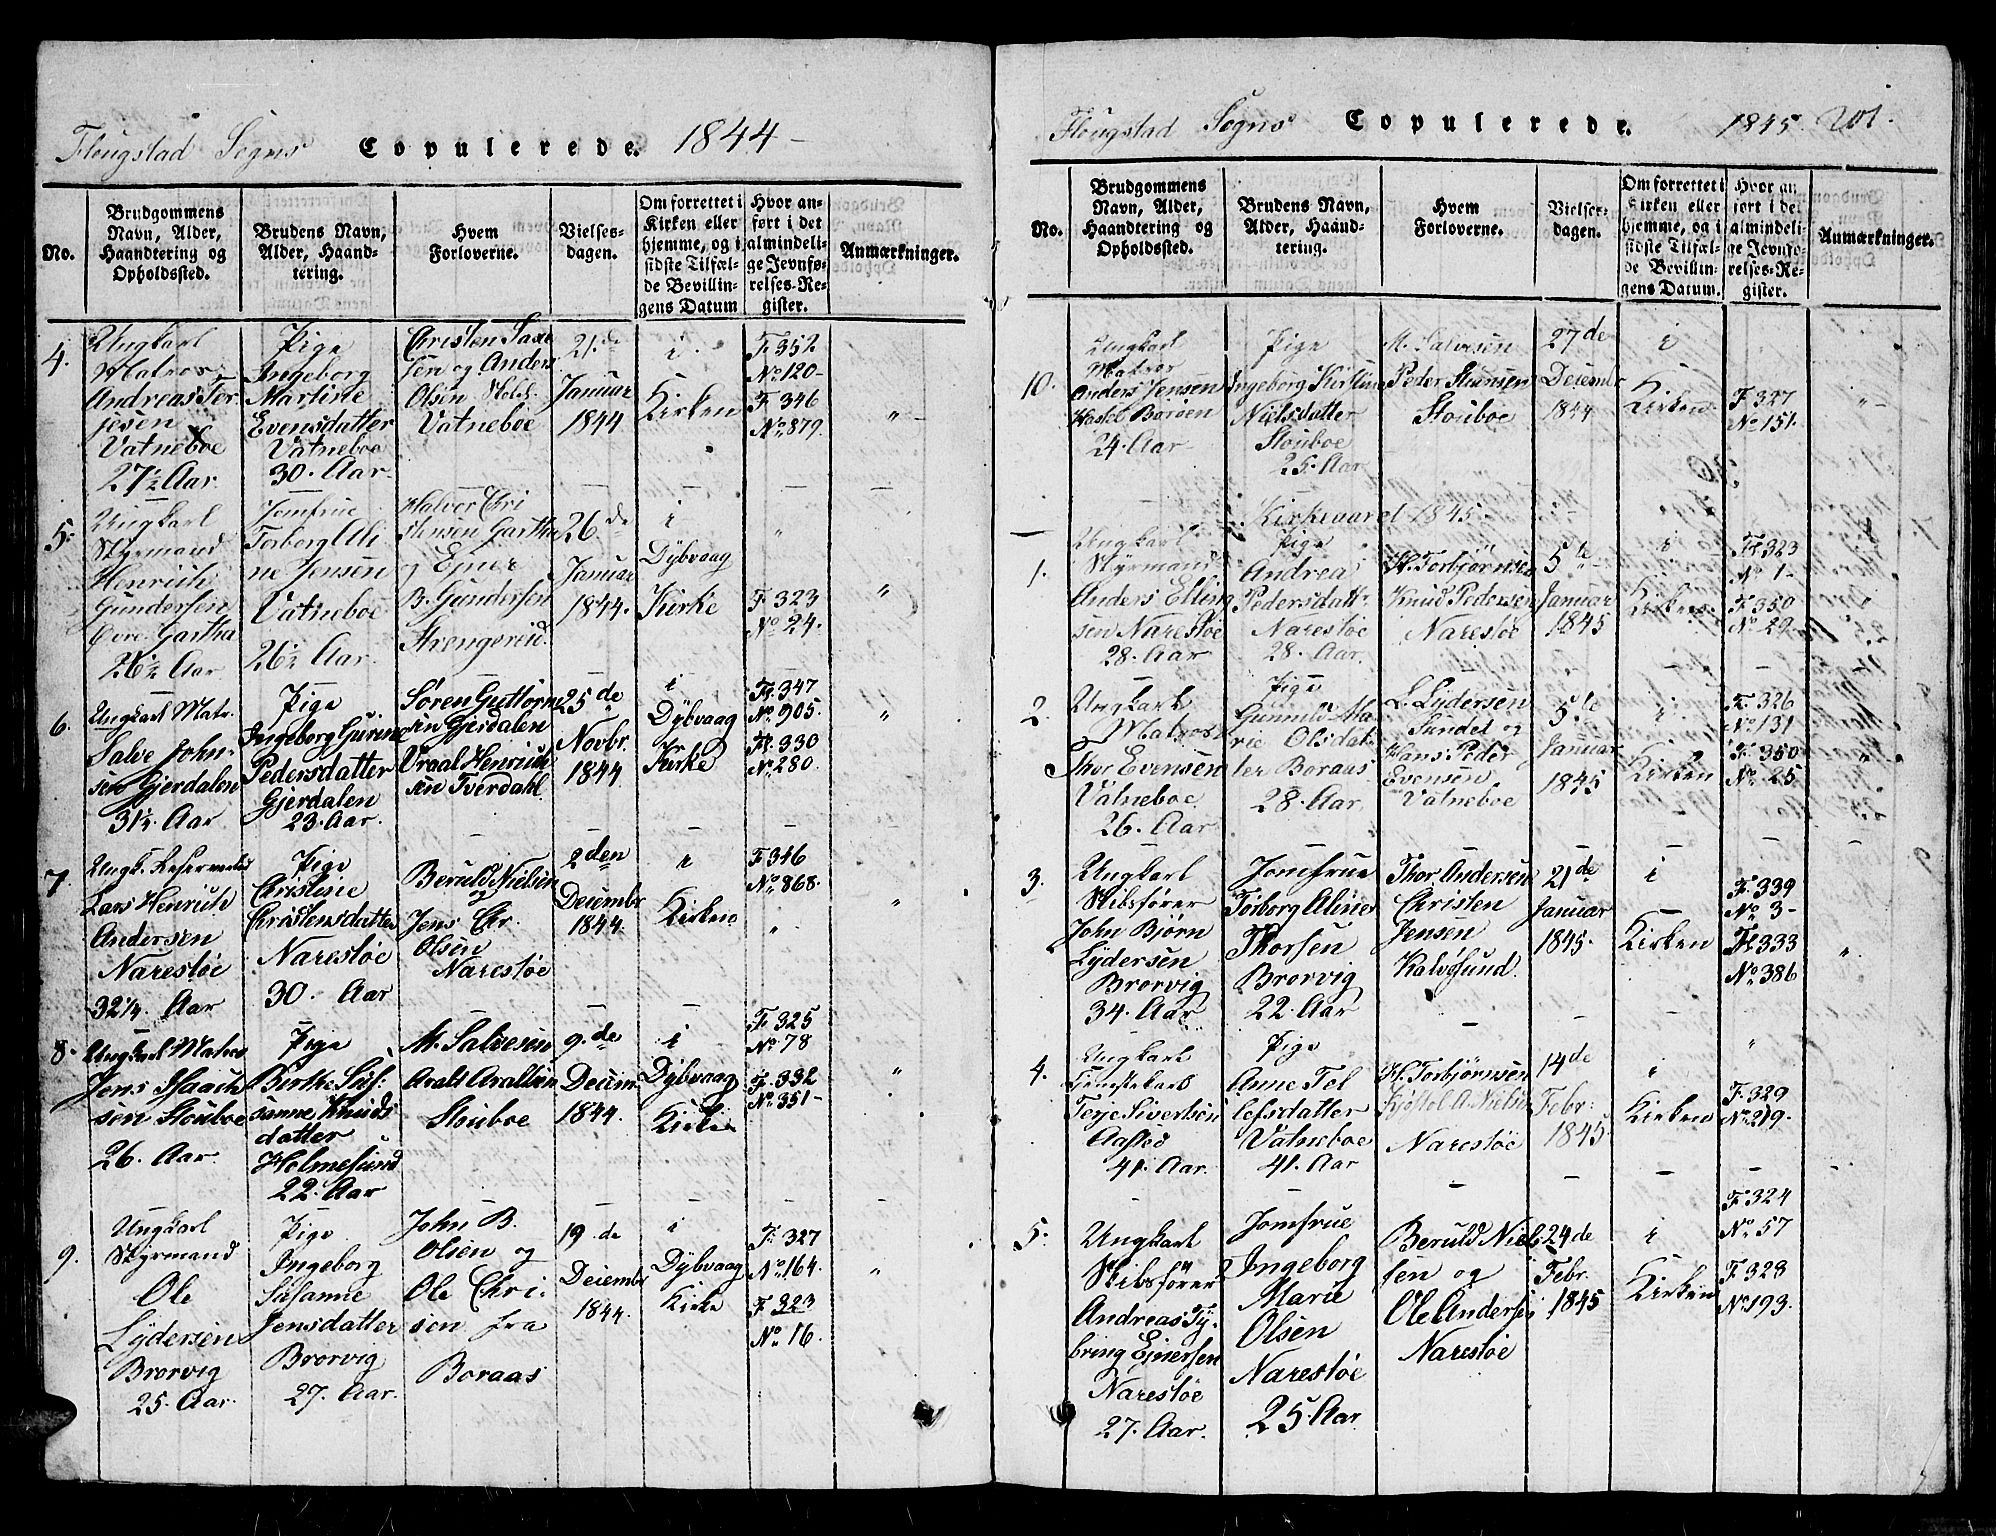 Flougstad Sogns Copulerede. 1844-
No.
Brudgommens Navn, Alder, Haandtering og Opholdssted.
Brudens Navn, Alder, Haandtering.
Hvem Forloverne.
Vielsesdagen.
Om forrettet i Kirken eller hjemme, og i sidste Tilfælde Bevillingens Datum
Hvor anført i det almindelige Jevnførelses-Register.
Anmærkninger.
4.
Ungkarl
Matros
Andreas Ter
jesen
Vatneboe
27½ Aar.
Pige
Ingeborg
Martine
Evensdatter
Vatneboe
30. Aar.
Christen
sen og Anders
Olsen
Vatneboe
21.de
Januar
1844
i
Kirken
F. 352
No 120-
F. 346
No 879.
"
5.
Ungkarl
Styrmand
Henrich
Gundersen
Gartha
26½ Aar
Jomfrue
Torborg Ali
ne Jensen
Vatneboe
26½ Aar.
Halvor Chri
stensen Gartha
og Ejner
B. Gundersen
Strengereid.
26.de
Januar
1844.
i
Dybvaag
Kirke
F. 323
No 24.
"
6.
Ungkarl Matr.
Salve John-
sen Gjerdalen
31½. Aar
Pige
Ingeborg Gurine
Pedersdatter
Gjerdalen
23. Aar.
Søren Guttorm
sen Gjerdalen
Vraal Henrich
sen Tverdahl.
25de
Novbr.
1844
i
Dybvaag
Kirke
F. 347
No 905.
F. 330
No 280.
"
7.
Ungk.
Lars Henrich
Andersen
Narestøe
32¼ Aar
Pige
Christine
Christensdatter
Narestøe
30. Aar
Beruld Nielsen
og
Jens Chr.
Olsen
Narestøe
2den
Decembr
1844.
i
Kirken
F. 346
No 868.
"
8.
Ungkarl Matros
Jens Isaach
sen Stouboe
26. Aar.
Pige
Birthe Su
sanne Knuds
datter
Holmesund
22. Aar
M. Salvesen
Aralt Araltsen
Stouboe
9.de
Decem.
1844.
i
Dybvaag
Kirke
F. 325
No 78
F. 332
No 351-
"
9.
Ungkarl
Styrmand
Ole
Lydersen
Brorvig
25. Aar.
Pige
Ingeborg
Susanne
Jensdatter
Brorvig
27. Aar.
John B.
Olsen og
Ole Chri.
sen fra
Boraas
19.de
Decembr
1844.
i
Dybvaag
Kirke
F. 327
No 164.
F. 323
No 16.
"
Flougstad Sogns Copulerede. 1845. 201.
No.
Brudgommens Navn, Alder, Haandtering og Opholdssted.
Brudens Navn, Alder, Haandtering.
Hvem Forloverne.
Vielsesdagen.
Om forrettet i Kirken eller hjemme, og i sidste Tilfælde Bevillingens Datum.
Hvor anført i det almindelige Jevnførelses-Register.
Anmærkninger.
10.
Ungkarl
Matros
Anders Jensen
Borøen
24. Aar
Pige
Ingeborg Kirstine
Nielsdatter
Stouboe
25. Aar
M. Salvesen
Peder
Stouboe
27de
Decembr
1844
i
Kirken
F. 327
No 151.
"
Kirkeaaret 1845.
1.
Ungkarl
Styrmand
Anders Elling
sen Narestøe
28. Aar
Pige
Andrea
Pedersdatt.
Narestøe
28. Aar.
H. Torbjørnsen
Knud Pedersen
Narestøe
5te
Januar
1845
i
Kirken
F. 323
No 1-
F. 350
No 29-
"
2.
Ungkarl
Matros
Thor Evensen
Vatneboe.
26. Aar
Pige
Gunnild Ma
rie Olsdat
ter Boraas
28. Aar.
L. Lydersen
Sundet og
Hans Peder
Evensen
Vatneboe
5te
Januar
1845
i
Kirken
F. 326
No 131
F. 350
No 25
"
3.
Ungkarl
Skibsfører
John Bjørn
Lydersen
Brorvig
34. Aar
Jomfrue
Torborg Aline
Thorsen
Brorvig
22. Aar
Thor Andersen
Christen
Jensen
Kalvøsund.
21de
Januar
1845.
i
Kirken
F. 339
No 3-
F. 333
No 386
"
4.
Ungkarl
Terje Sivertsen
41. Aar.
Pige
Anne Tel
lefsdatter
Vatneboe
41. Aar
H. Torbjørnsen
Narestøe
14de
Febr:
1845.
i
Kirken
F. 329
No. 219.
"
5.
Ungkarl
Skibsfører
Andreas Ty.
bring Ejnersen
Narestøe
27. Aar.
Jomfrue
Ingeborg
Marie
Olsen
Narestøe
25. Aar
Beruld Niel
sen og
Ole Andersen
Narestøe
24de
Febr.
1845
i
Kirken
F. 324
No 57
F. 328
No 193.